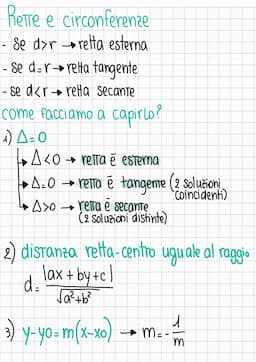 Rette e circonferenze
- Se d>r → retta esterna
- se d=r → retta tangente
- se d<r → retta secante
come facciamo a capirlo?
1) Δ=0
Δ<0 → retta è esterna
Δ=0 → retta è tangente (2 soluzioni coincidenti)
Δ>0 → retta è secante
(2 soluzioni distinte)
2) distanza retta-centro uguale al raggio
d = |ax+by+c| / √a²+b²
3) y-y0=m(x-x0) → m=-1/m